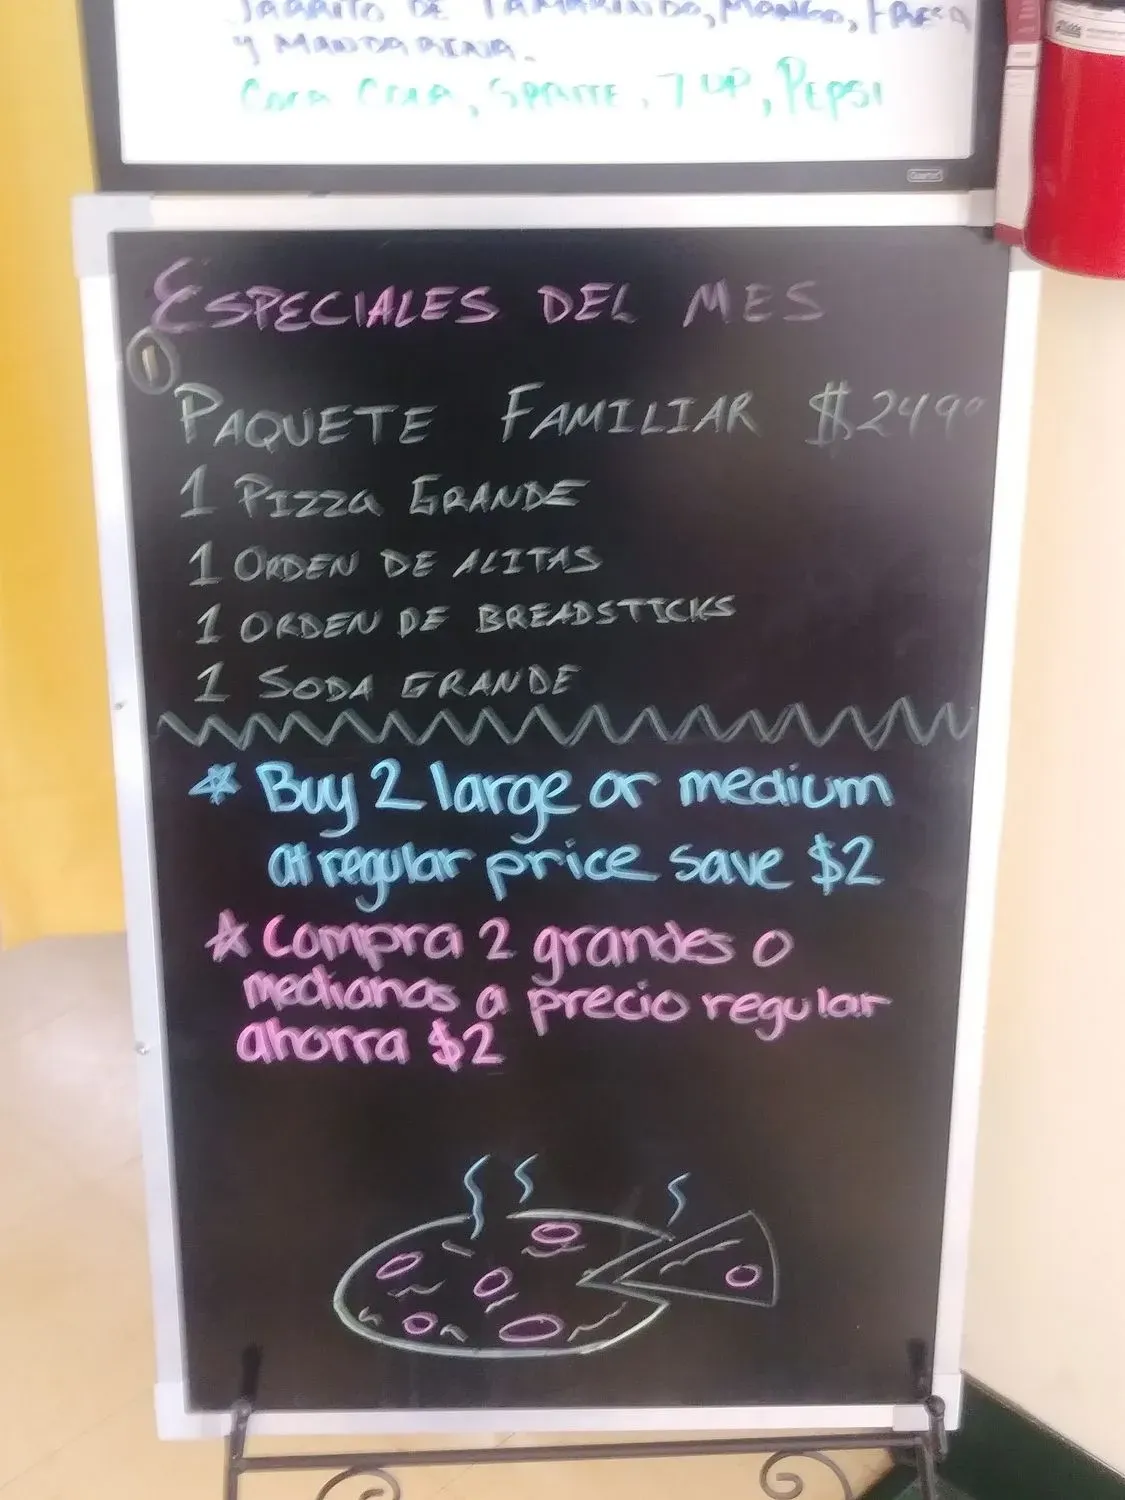 JARRITO DE TAMARINDO, MANGO, FRESA
Y MANDARINA.
COCA COLA, SPRITE, 7 UP, PEPSI
Quartet
ESPECIALES DEL MES
1
PAQUETE FAMILIAR $249⁰
1 PIZZA GRANDE
1 ORDEN DE ALITAS
1 ORDEN DE BREADSTICKS
1 SODA GRANDE
Buy 2 large or medium
at regular price save $2
Compra 2 grandes o
medianas a precio regular
ahorra $2